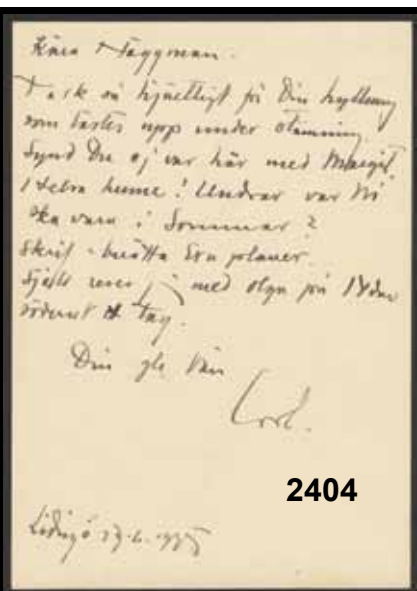 Kära Häggman.
Tack så hjärtligt för Din hyllning
som lästes upp under stämning.
Synd Du ej var här med Margit.
Undrar var Ni
ska vara i Sommar?
Skrif - berätta Era planer.
Själv reser jag med Olga på
söderut
Din gle Vän
Carl.
2404
Lidingö 27.6.